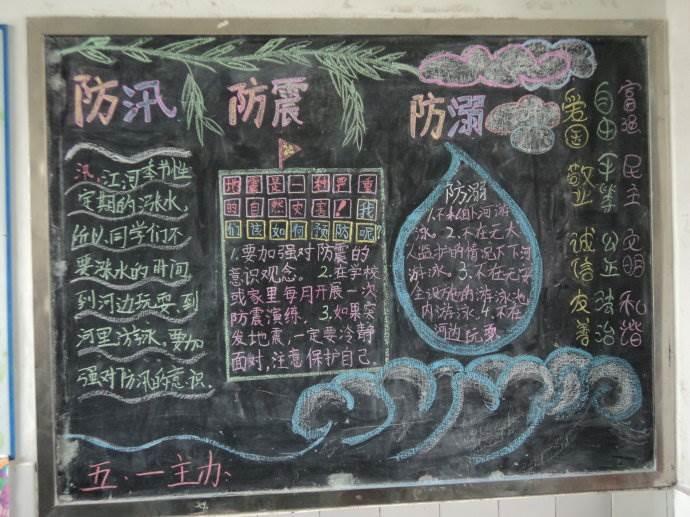 防汛
汛,江河季节性
定期的涨水,
所以同学们不
要涨水的时间
到河边玩耍,到
河里游泳,要加
强对防汛的意识.
防震
地震是一种严重
的自然灾害!我
们该如何预防呢?
1.要加强对防震的
意识观念. 2.在学校
或家里每月开展一次
防震演练. 3.如果突
发地震,一定要冷静
面对,注意保护自己.
防溺
防溺
1.不私自下河游
泳. 2.不在无大
人监护的情况下下河
游泳. 3.不在无安
全设施的游泳池
内游泳. 4.不在
河边玩耍
富强 民主 文明 和谐
自由 平等 公正 法治
爱国 敬业 诚信 友善
五.一主办.